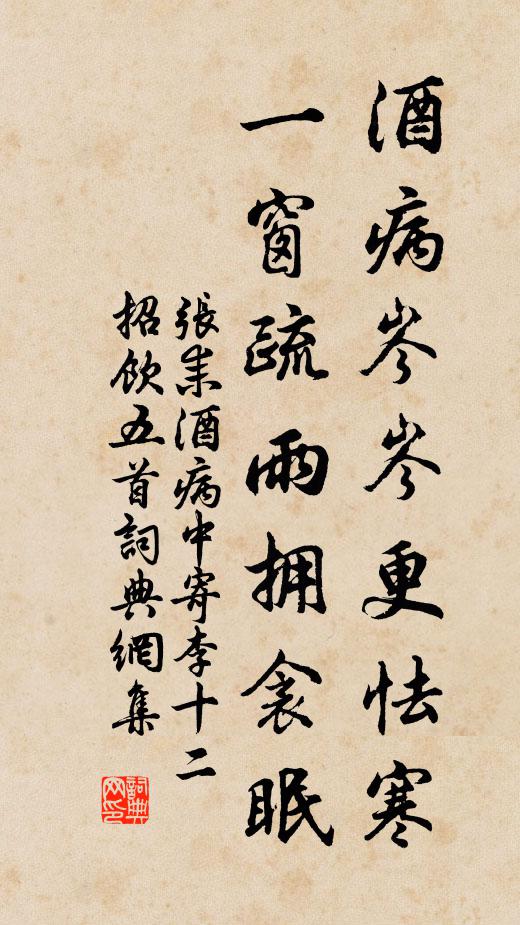 酒病岑岑更怯寒
一窗疏雨拥衾眠
張耒酒病中寄李十二
招飲五首詞典網集
詞典网印